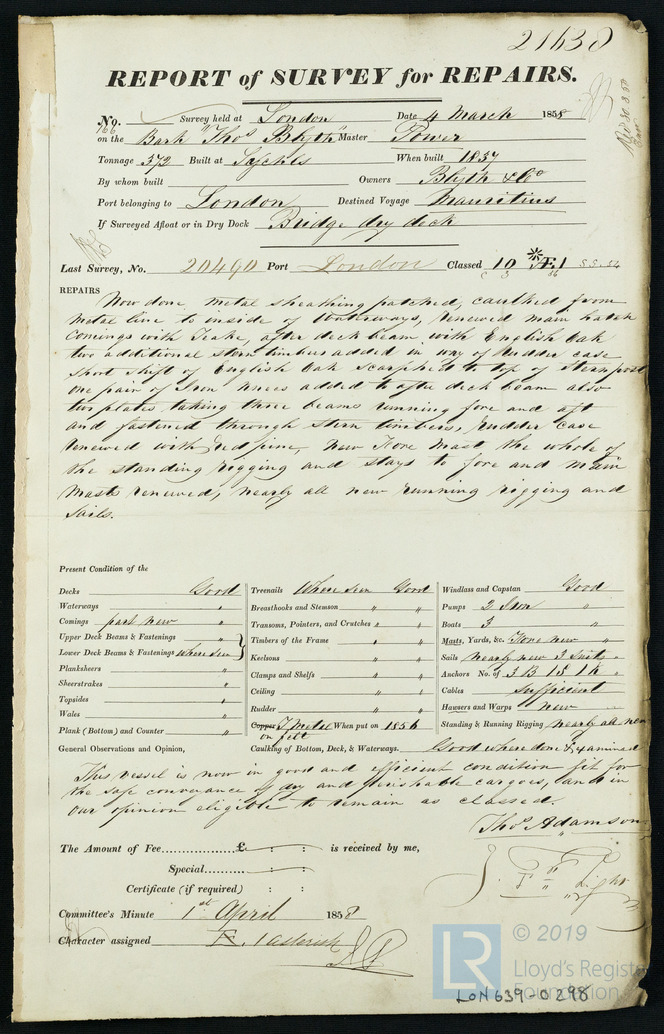 21638
REPORT of SURVEY for REPAIRS.
No. Survey held at London Date 4 March 1858
166
on the Bark "Thos Blyth" Master Power
Tonnage 372 Built at When built 1837
By whom built Owners Blyth & Co
Port belonging to London Destined Voyage Mauritius
If Surveyed Afloat or in Dry Dock Bridge dry dock
Last Survey, No. 20490 Port London Classed 10 Æ1 S.S. 54
REPAIRS
Now done metal sheathing patched, caulked from
metal line to inside of Waterways, renewed main hatch
Comings with Teake, after deck beam with English Oak
two additional stern timbers added in way of rudder case
short shift of English Oak scarphed to top of Sternpost
one pair of Iron knees added to after deck beam also
two plates taking three beams running fore and aft
and fastened through stern timbers, rudder case
renewed with red pine, New Fore Mast the whole of
the standing rigging and stays to fore and main
Masts renewed, nearly all new running rigging and
Sails.
Present Condition of the
Decks Good
Waterways "
Comings part new "
Upper Deck Beams & Fastenings "
Lower Deck Beams & Fastenings where seen "
Planksheers "
Sheerstrakes "
Topsides "
Wales "
Plank (Bottom) and Counter "
Treenails Where seen Good
Breasthooks and Stemson " "
Transoms, Pointers, and Crutches " "
Timbers of the Frame " "
Keelsons " "
Clamps and Shelfs " "
Ceiling " "
Rudder " "
Copper Y Metal When put on 1856
on felt
Windlass and Capstan Good
Pumps 2 Iron "
Boats 3 "
Masts, Yards, &c. Fore new "
Sails nearly new 3 Suits "
Anchors No. of 3 B 1 S 1 K "
Cables Sufficient
Hawsers and Warps New "
Standing & Running Rigging nearly all new
General Observations and Opinion, Caulking of Bottom, Deck, & Waterways. Good where done & examined
This vessel is now in good and efficient condition fit for
the safe conveyance of dry and perishable cargoes, and in
our opinion eligible to remain as classed.
Thos Adamson
Light
The Amount of Fee £ : : is received by me,
Special : :
Certificate (if required) : :
Committee's Minute 1st April 1858
Character assigned Æ. 1 asterisk
LR © 2019
Lloyd's Register
Foundation
LON639-0298